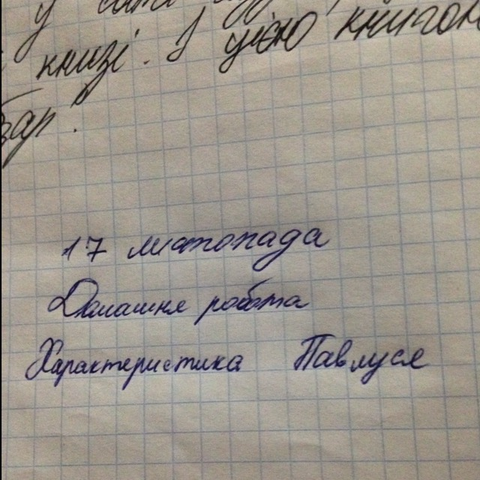 у
книзі. І цією книгою
17 листопада
Домашня робота
Характеристика Павлуся